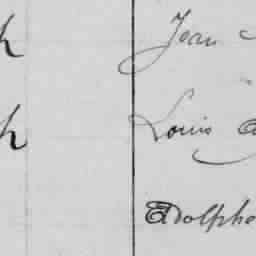 Jean
Louis
Adolphe